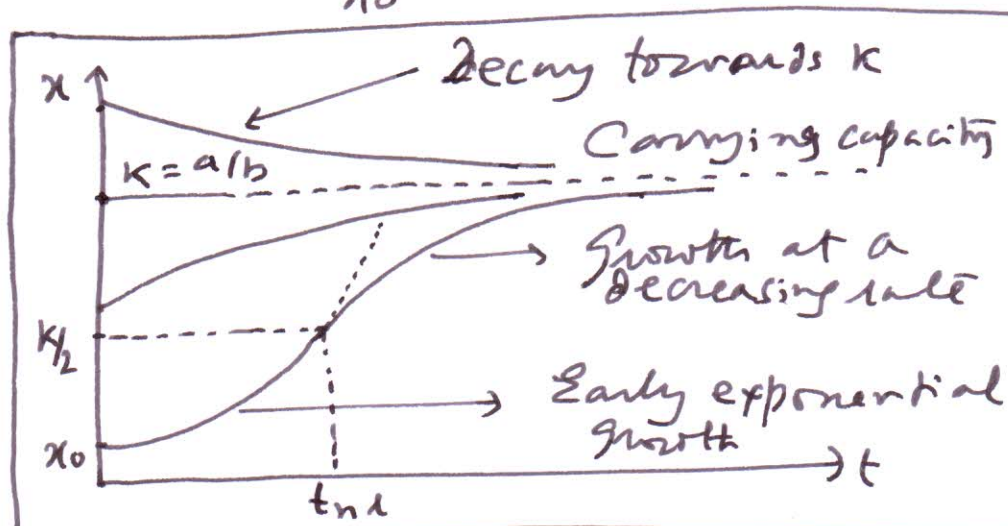 x0
x
Decay towards K
K = a/b
Carrying capacity
Growth at a
decreasing rate
K/2
Early exponential
growth
x0
t
tnl